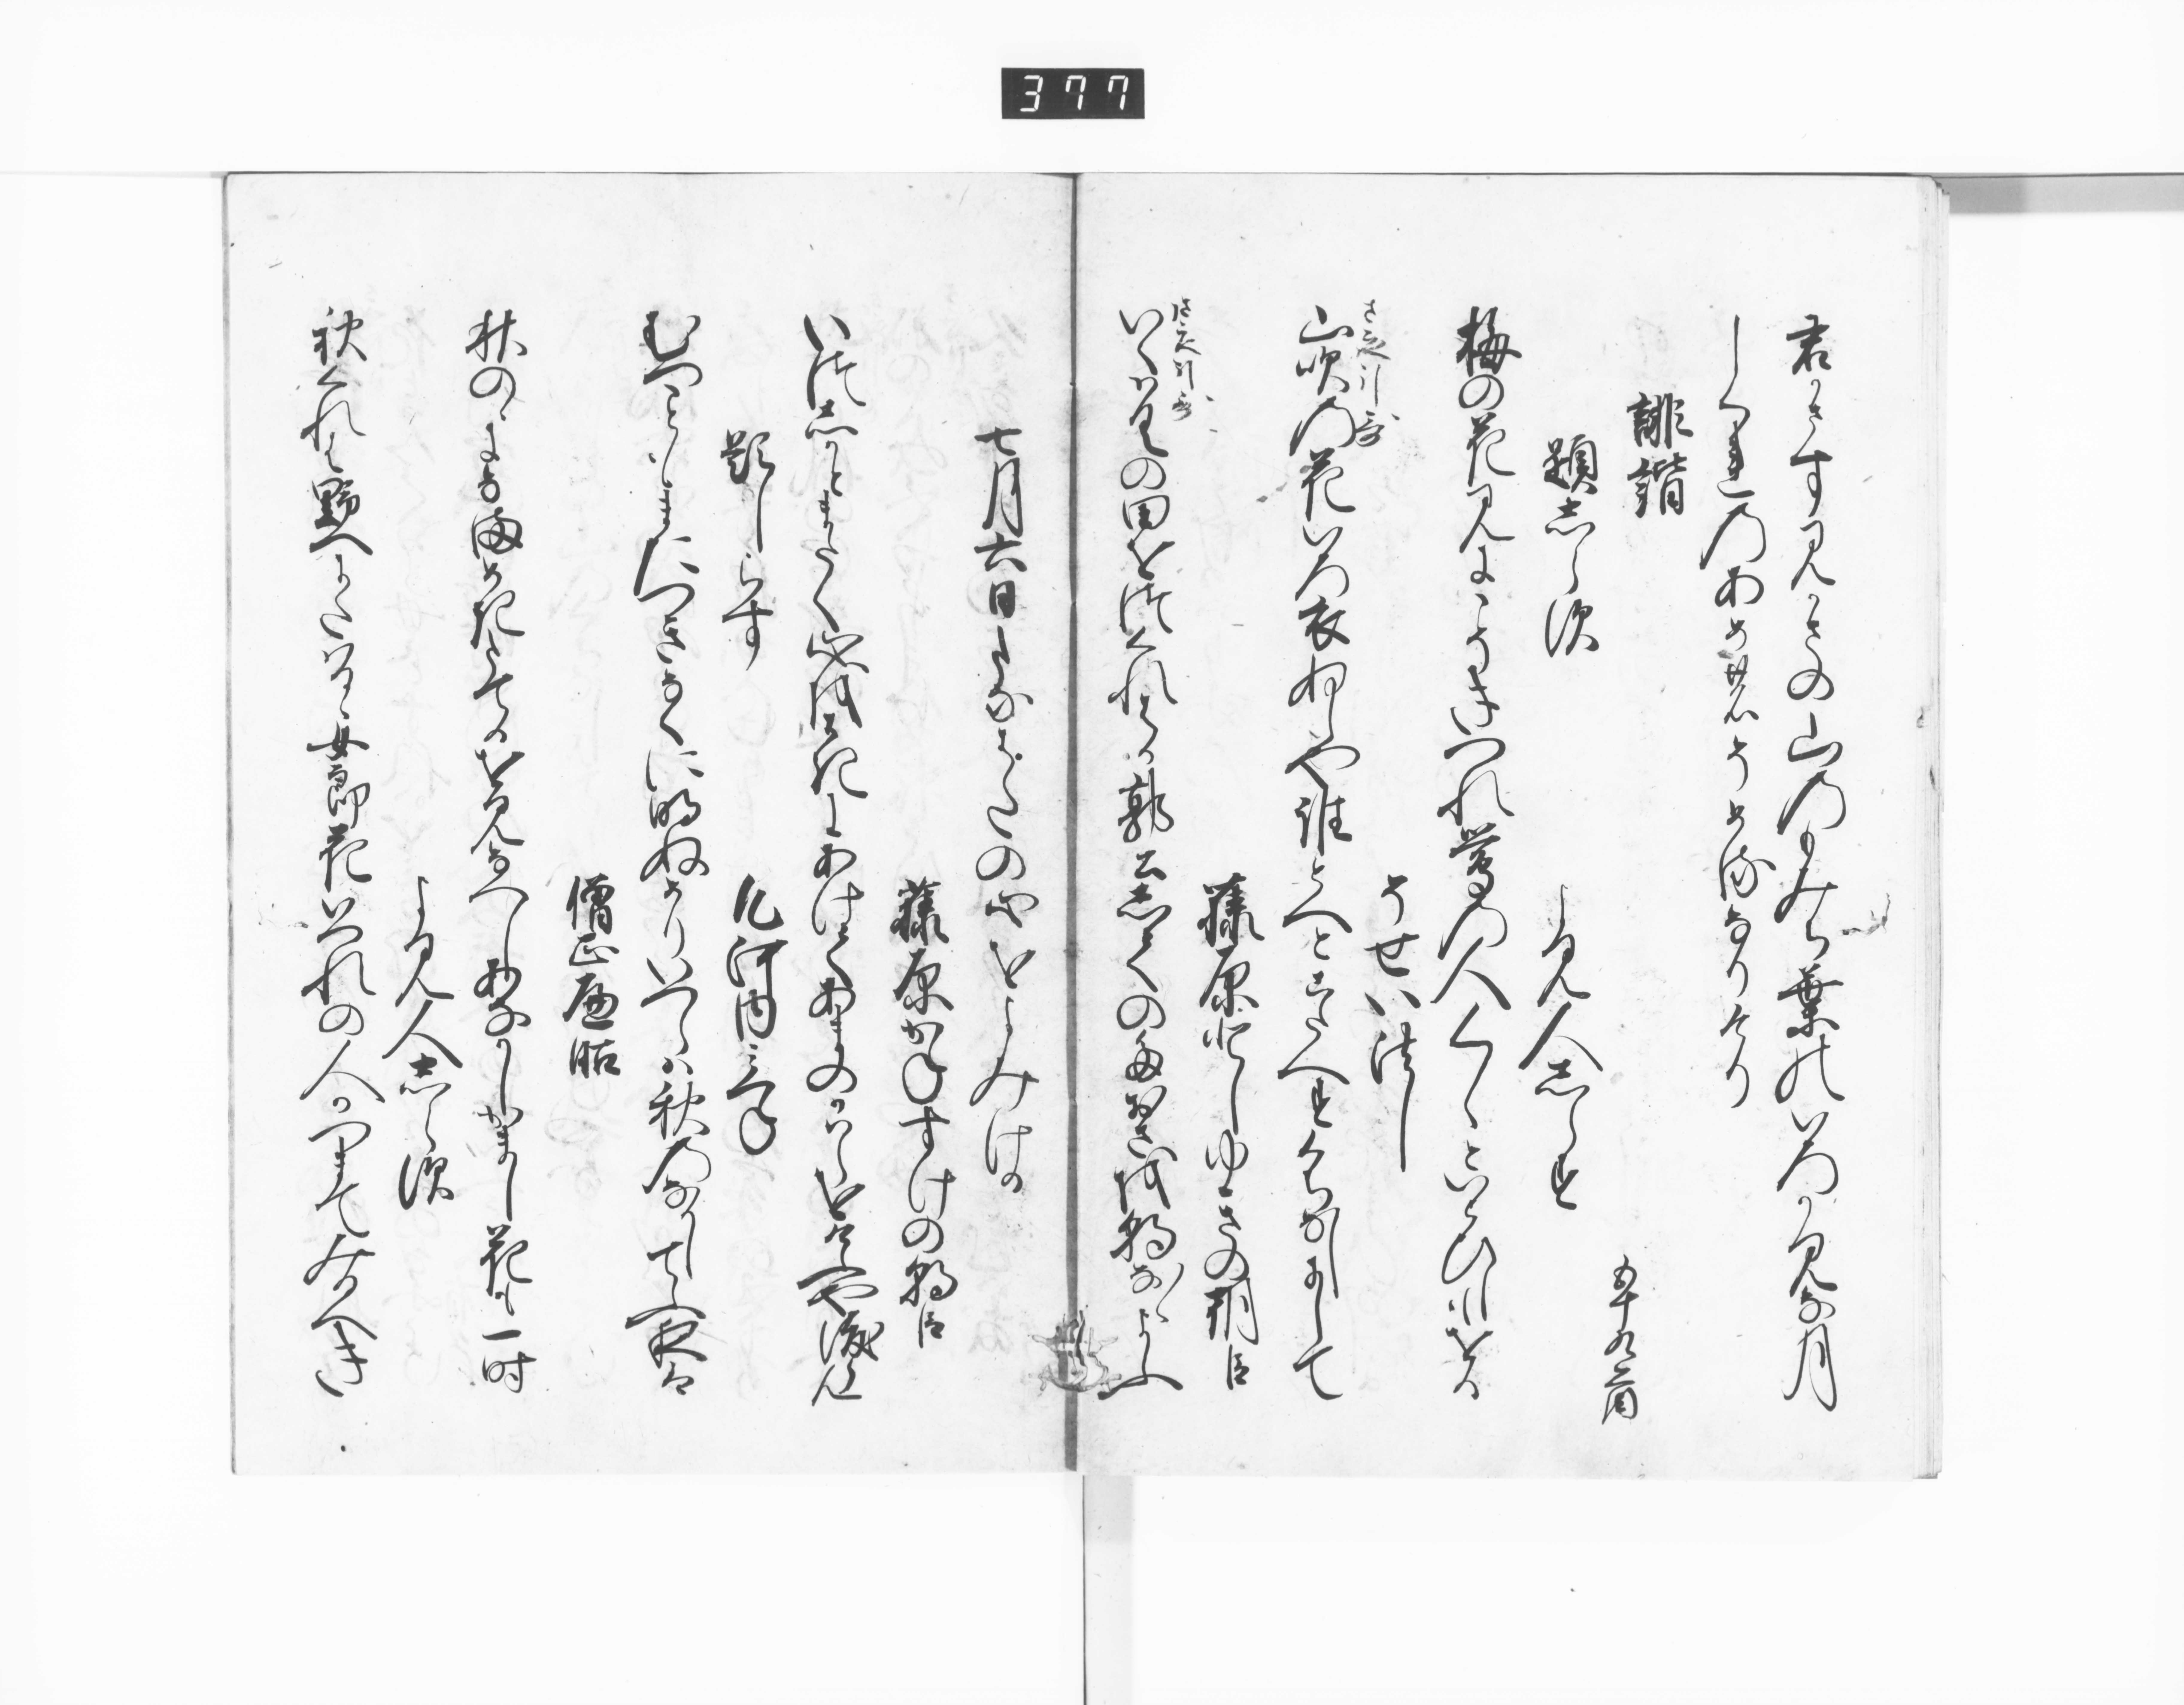 377
君かさす見かさの山のもみち葉のいろか見な月
しくれのあめのそめるなりけり
誹諧
五十九首
題志らす　よみ人志らす
梅の花見にこそきつれ鶯の人く〳〵といとひしもをる
そせい法し
山吹の花いろ衣ぬしや誰とへとこたへすくちなしにして
藤原としゆきの朝臣
いくはくの田をつくれはか郭公志ての田おさを朝な〳〵よふ
七月六日たなはたの心をよみける
藤原かねすけの朝臣
いつしかとまたく心をはきにあけてあまのかはらをけふや渡らん
題しらす　凡河内みつね
むつこともまたつきなくに明ぬめりいつらは秋のなかしてふ夜は
僧正遍昭
秋のゝになまめきたてるをみなへしあなかしかまし花も一時
よみ人志らす
秋くれは野へにたはるゝ女郎花いつれの人かつまてみるへき